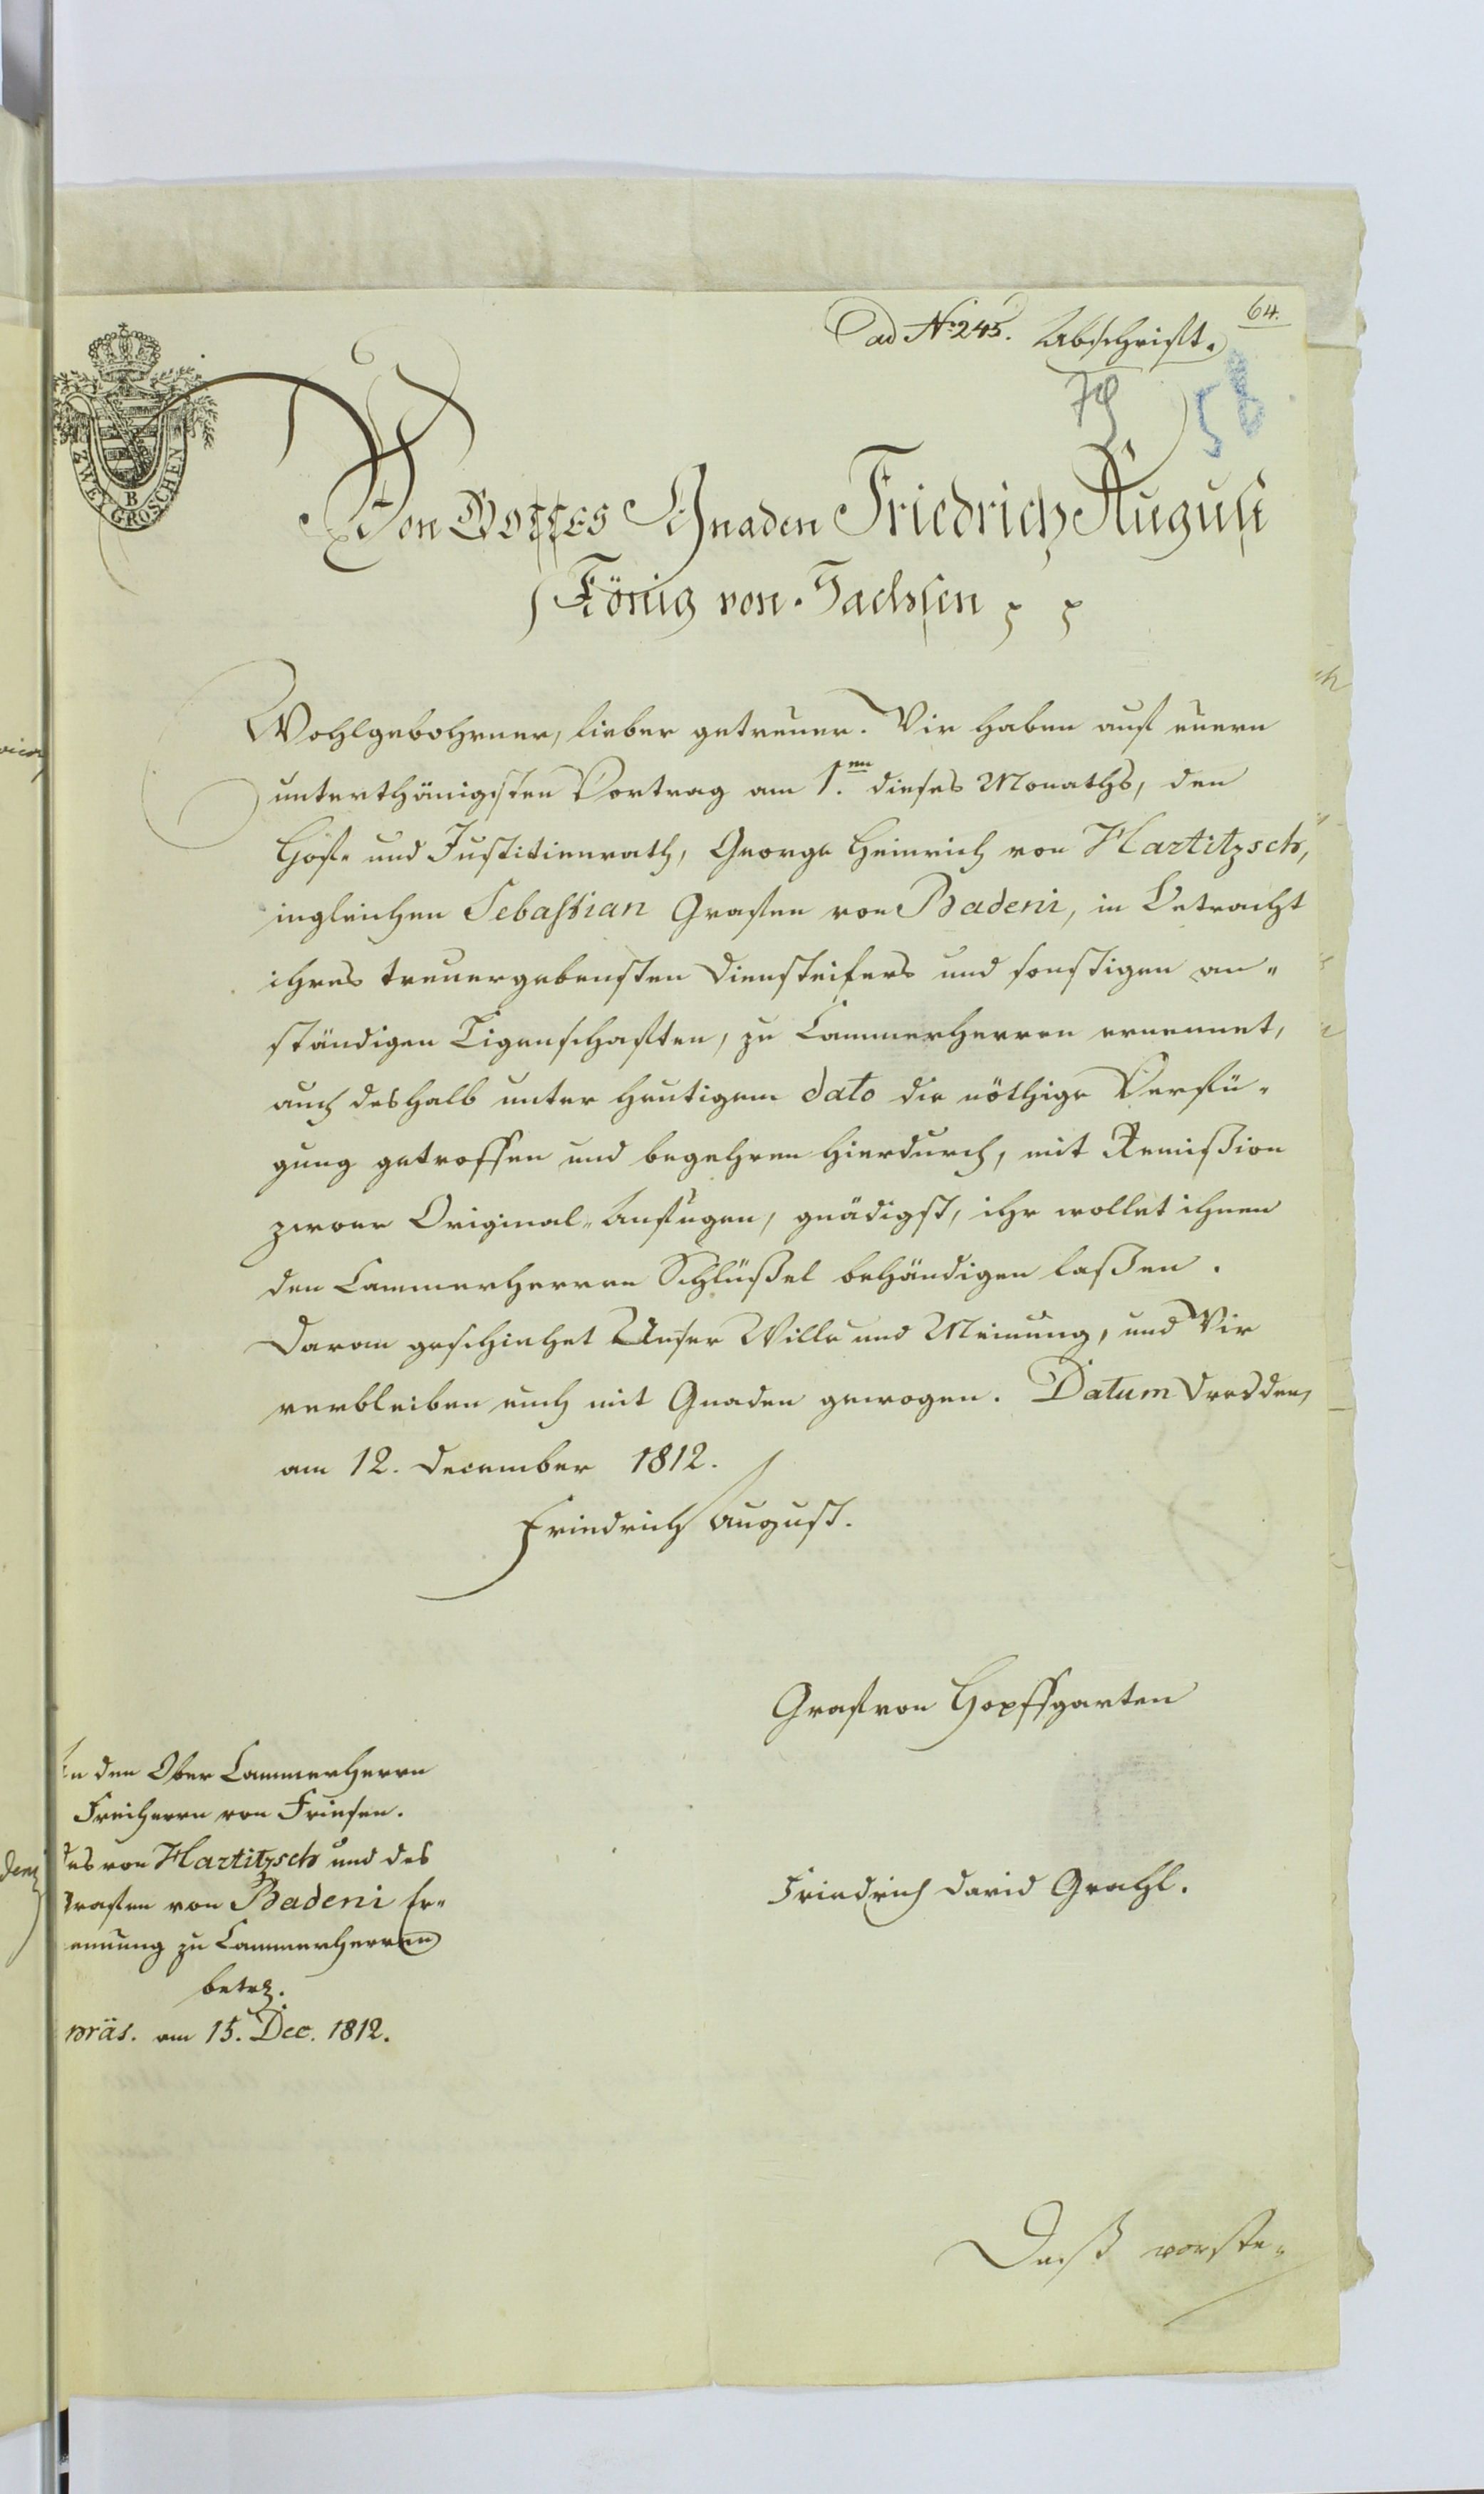 64.
ad No. 245. Abschrift.
79 56
ZWEY GROSCHEN
B
Von Gottes Gnaden Friedrich August
König von Sachsen
Wohlgebohrner, lieber getreuer. Wir haben auf euern
unterthänigsten Vortrag am 1.ten dieses Monaths, den
Hof- und Justitienrath, George Heinrich von Hartitzsch,
ingleichen Sebastian Grafen von Badeni, in Betracht
ihres treuergebensten Diensteifers und sonstigen an-
ständigen Eigenschaften, zu Cammerherren ernennet,
auch deshalb unter heutigem dato die nöthige Verfü-
gung getroffen und begehren hierdurch, mit Remißion
zweer Original-Anfugen, gnädigst, ihr wollet ihnen
den Cammerherren Schlüßel behändigen laßen.
Daran geschiehet Unser Wille und Meinung, und Wir
verbleiben euch mit Gnaden gewogen. Datum Dresden,
am 12. December 1812.
Friedrich August.
Graf von Hopffgarten
An den Ober Cammerherrn
Freiherrn von Friesen.
des von Hartitzsch und des
Grafen von Badeni Er-
ennung zu Cammerherren
betr.
präs. am 15. Dec. 1812.
Friedrich David Grahl.
Daß vorste-